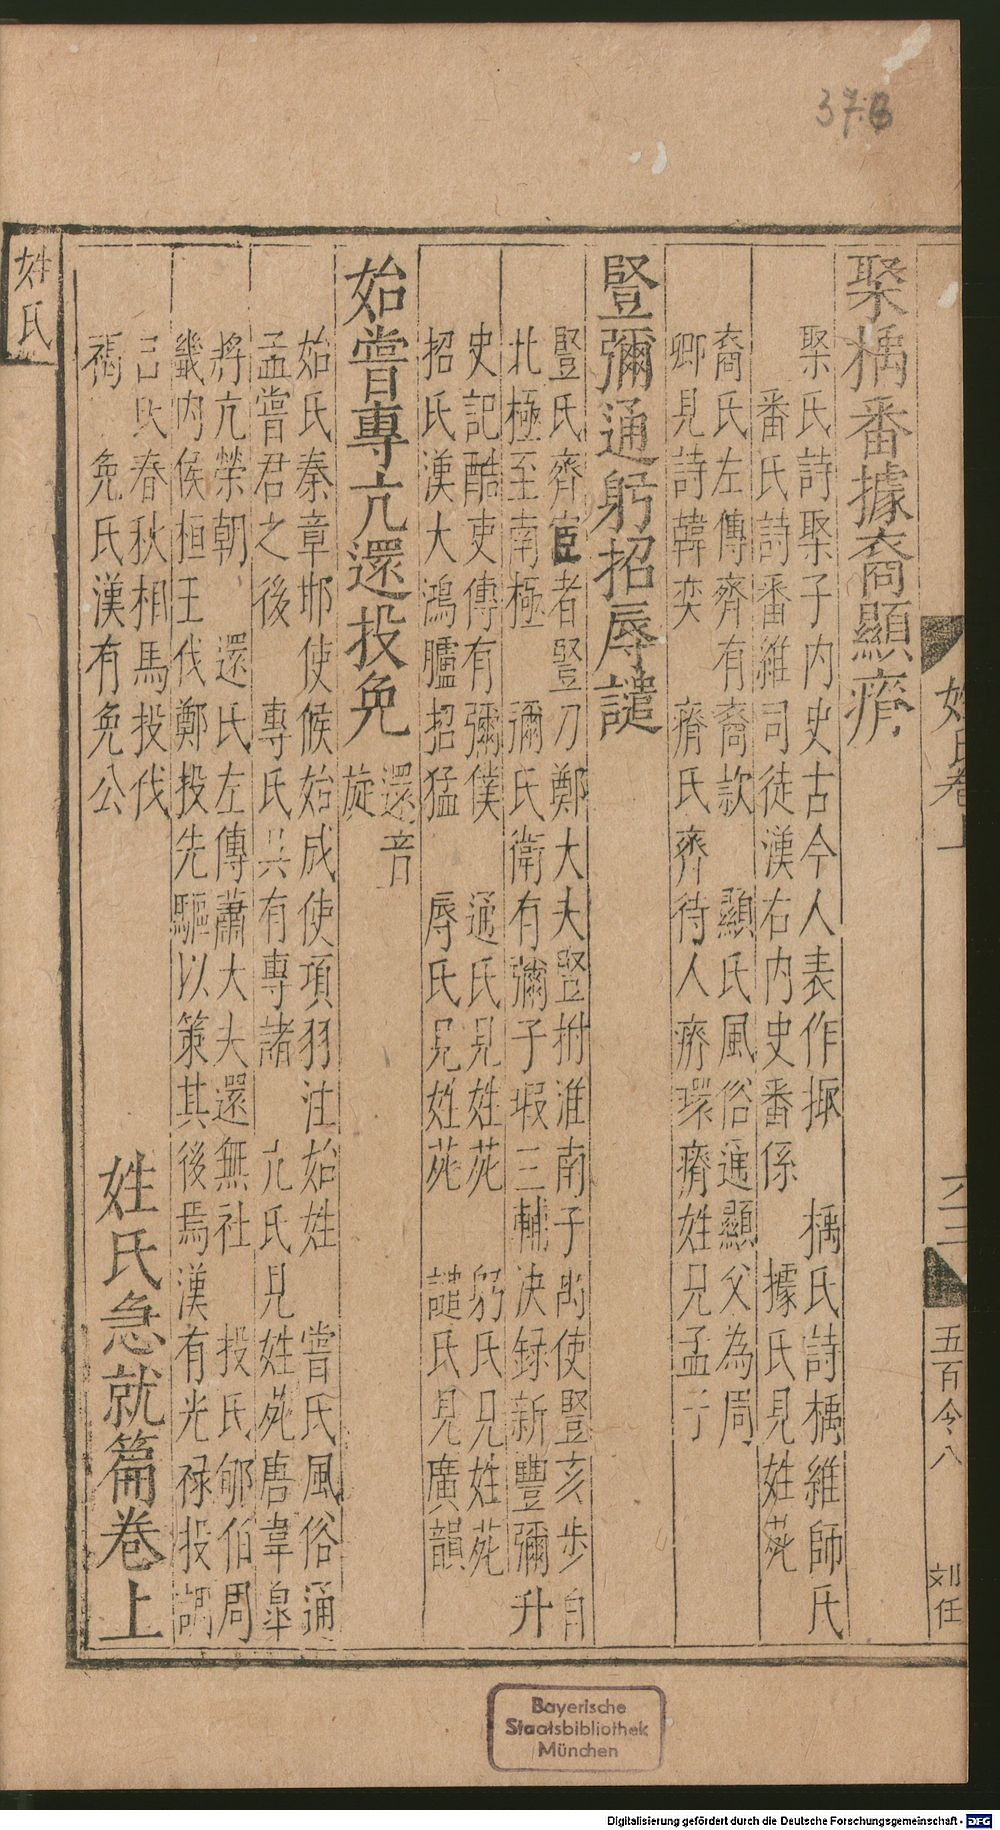 聚楀番據裔顯瘠
聚氏詩聚子内史古今人表作掫　楀氏詩楀維師氏
番氏詩番維司徒漢右内史番係　據氏見姓苑
裔氏左傳齊有裔款　顯氏風俗通顯父為周
卿見詩韓奕　瘠氏齊待人瘠環瘠姓見孟子
豎彌通躬招辱譴
豎氏齊宦者豎刀鄭大夫豎拊淮南子禹使豎亥步自
北極至南極　彌氏衛有彌子瑕三輔決録新豐彌升
史記酷吏傳有彌僕　通氏見姓苑　躬氏見姓苑
招氏漢大鴻臚招猛　辱氏見姓苑　譴氏見廣韻
始嘗專亢還投免 還音旋
始氏秦章邯使候始成使項羽注始姓　嘗氏風俗通
孟嘗君之後　專氏吳有專諸　亢氏見姓苑唐韋皐
將亢榮朝　還氏左傳蕭大夫還無社　投氏郇伯周
畿内侯桓王伐鄭投先驅以策其後焉漢有光禄投調
己氏春秋相馬投伐
褐　免氏漢有免公
姓氏急就篇卷上
姓氏
姓氏卷上
六三
五百令八
刘任
376
Bayerische
Staatsbibliothek
München
Digitalisierung gefördert durch die Deutsche Forschungsgemeinschaft - DFG